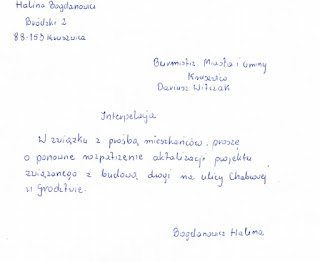 Halina Bogdanowicz
Bródzki 2
88-153 Kruszwica
Burmistrz Miasta i Gminy
Kruszwica
Dariusz Witczak
Interpelacja
W związku z prośbą mieszkańców, proszę
o ponowne rozpatrzenie aktalizacji projektu
związanego z budową drogi na ulicy Chabrowej
w Grodztwie.
Bogdanowicz Halina